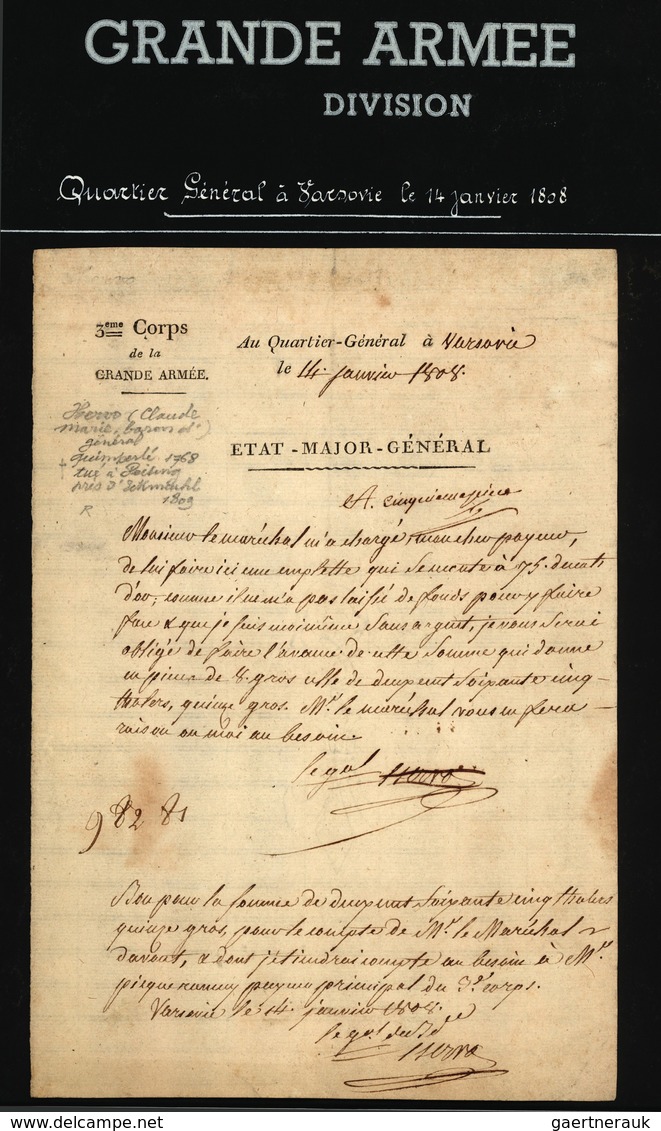 GRANDE ARMEE
DIVISION
Quartier Général à Varsovie le 14 janvier 1808
3eme Corps
de la
GRANDE ARMÉE.
Au Quartier-Général à Varsovie
le 14. janvier 1808.
Hervo (Claude
marie, baron d')
général
Quimperlé 1768
+ tué à
près d'Eckmühl
1809
R
ETAT-MAJOR-GÉNÉRAL
A. cinquieme piece
Monsieur le maréchal m'a chargé, mon cher payeur,
de lui faire ici une emplette qui se monte à 75. ducats
d'or; comme il ne m'a pas laissé de fonds pour y faire
face & que je suis moimême sans argent, je vous serai
obligé de faire l'avance de cette somme qui donne
en pieces de 8. gros celle de deux cent soixante cinq
thalers, quinze gros. Mr. le maréchal vous en fera
raison ou moi au besoin.
le gal Hervo
982 81
Bon pour la somme de deux cent soixante cinq thalers
quinze gros, pour le compte de Mr. le Maréchal
davout, & dont je tiendrai compte au besoin à Mr.
payeur principal du 3e. corps.
Varsovie le 14. janvier 1808.
le gal.
Hervo
delcampe.net
gaertnerauk